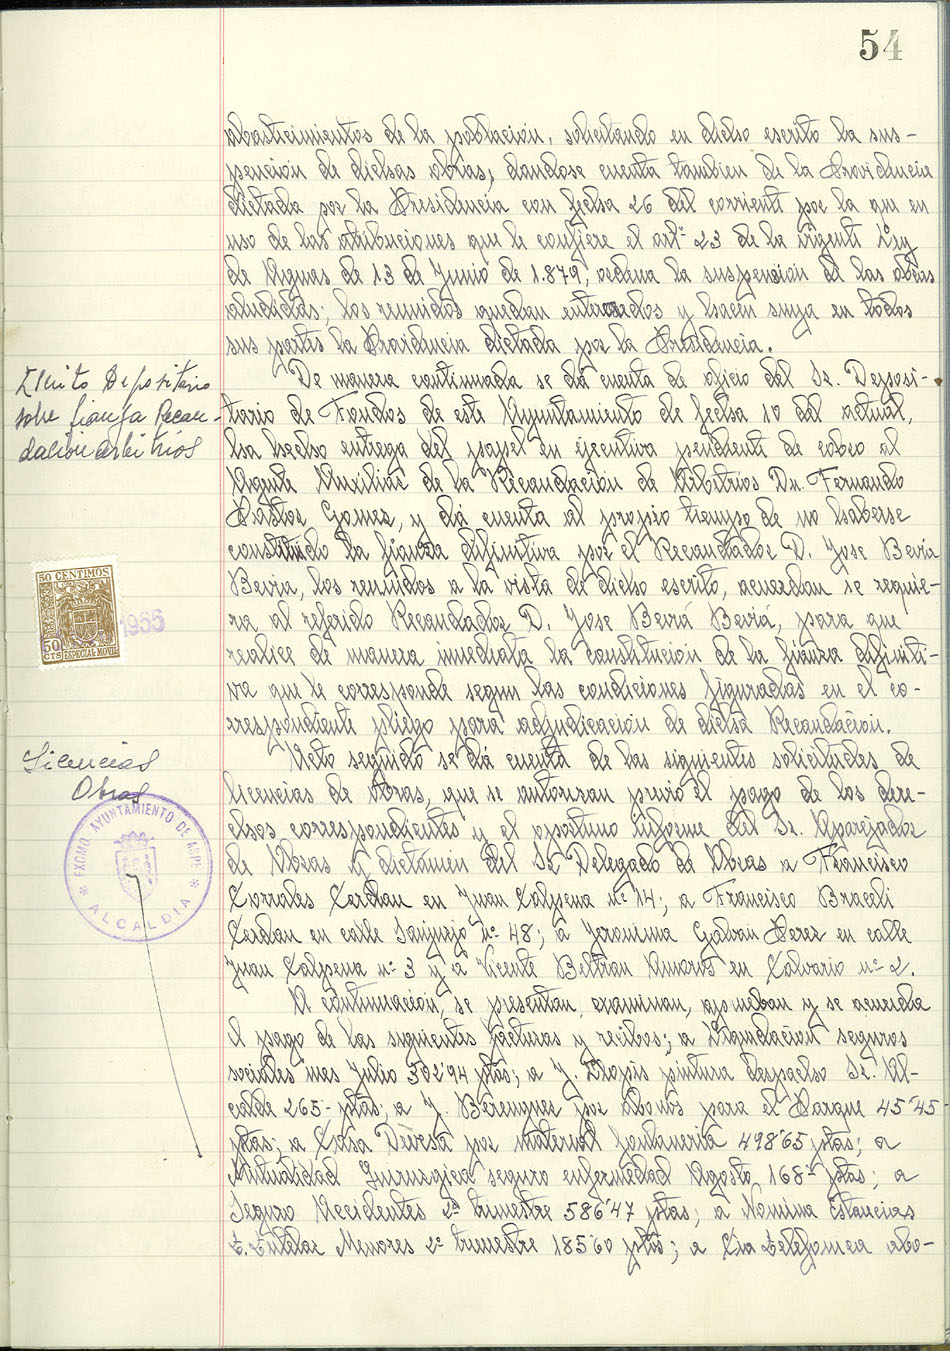 54
abastecimientos de la poblacion, solicitando en dicho escrito la sus-
pension de dichas obras, dandose cuenta tambien de la Providencia
dictada por la Presidencia con fecha 26 del corriente por la que en
uso de las atribuciones que le confiere el artº 23 de la vigente Ley
de Aguas de 13 de Junio de 1.879, ordena la suspencion de las obras
aludidas; los reunidos quedan enterados y hacen suya en todas
sus partes la Providencia dictada por la Presidencia.
Escrito Depositario
sobre fianza Recau-
dacion arbitrios
De manera continuada se dá cuenta de oficio del Sr. Deposi-
tario de Fondos de este Ayuntamiento de fecha 10 del actual,
ha hecho entrega del papel en ejecutiva pendiente de cobro al
Agente Auxiliar de la Recaudacion de Arbitrios Dn. Fernando
Pastos Gomez, y dá cuenta al propio tiempo de no haberse
constituido la fianza difinitiva por el Recaudador D. Jose Beviá
Bevia, los reunidos a la vista de dicho escrito, acuerdan se requie-
ra al referido Recaudador D. Jose Beviá Beviá, para que
realice de manera inmediata la constitucion de la fianza difiniti-
va que le corresponde segun las condiciones figuradas en el co-
rrespondiente pliego para adjudicacion de dicha Recaudacion.
50 CENTIMOS
50
CTS
ESPECIAL MOVIL
1955
Licencias
Obras
Acto seguido se dá cuenta de las siguientes solicitudes de
licencias de obras, que se autorizan previo el pago de los dere-
chos correspondientes y el oportuno informe del Sr. Aparejador
de Obras y dictámen del Sr. Delegado de Obras a Francisco
Corrales Cerdan en Juan Calpena nº 14; a Francisco Braceli
Cerdan en calle Sanjurjo nº 48; a Jeronima Galvan Perez en calle
Juan Calpena nº 3 y a Vicente Beltran Amoros en Calvario nº 2.
EXCMO. AYUNTAMIENTO DE ASPE
ALCALDIA
A continuacion, se presentan, examinan, aprueban y se acuerda
el pago de las siguientes facturas y recibos; a Liquidacion seguros
sociales mes Julio 302'94 ptas; a J. Llopis pintura despacho Sr. Al-
calde 265'- ptas; a J. Berenguer por abonos para el Parque 45'45-
ptas; a Casa Deversa por material fontaneria 498'65 ptas; a
Mutualidad Quirurgica seguro enfermedad Agosto 168'- ptas; a
Seguro Accidentes 2º trimestre 586'47 ptas; a Nomina Estancias
T. Tutelar Menores 2º trimestre 185'60 ptas; a Cia Telefonica abo-